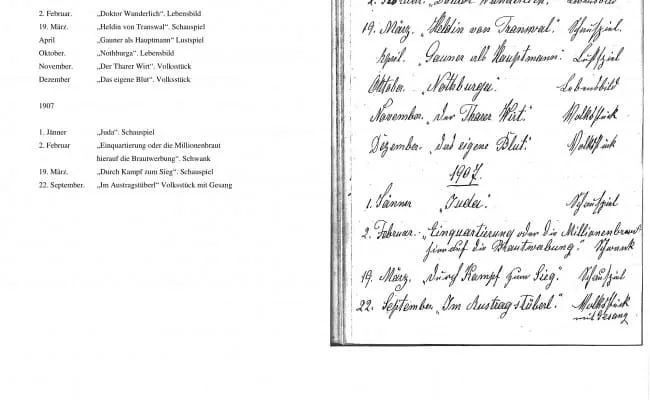 2. Februar. „Doktor Wunderlich“. Lebensbild
19. März. „Heldin von Transwal“. Schauspiel
April „Gauner als Hauptmann“ Lustspiel
Oktober. „Nothburga“. Lebensbild
November. „Der Tharer Wirt“. Volksstück
Dezember „Das eigene Blut“. Volksstück
1907
1. Jänner „Juda“. Schauspiel
2. Februar „Einquartierung oder die Millionenbraut
hierauf die Brautwerbung“. Schwank
19. März. „Durch Kampf zum Sieg“. Schauspiel
22. September. „Im Austragstüberl“ Volksstück mit Gesang
19. März. „Heldin von Transwal.“ Schauspiel.
April. „Gauner als Hauptmann. Lustspiel
Oktober. „Nothburga.“ Lebensbild
November. „Der Tharer Wirt.“ Volksstück
Dezember. „Das eigene Blut.“ Volksstück
1907.
1. Jänner „Juda.“ Schauspiel
2. Februar. „Einquartierung oder die Millionenbraut
hierauf die Brautwerbung.“ Schwank
19. März. „Durch Kampf zum Sieg.“ Schauspiel
22. September. „Im Austragstüberl.“ Volksstück
mit Gesang